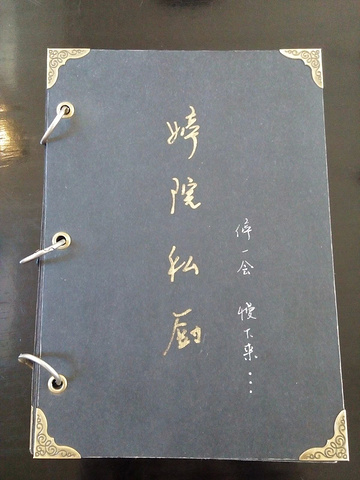 婷院私厨
停一会 慢下来...